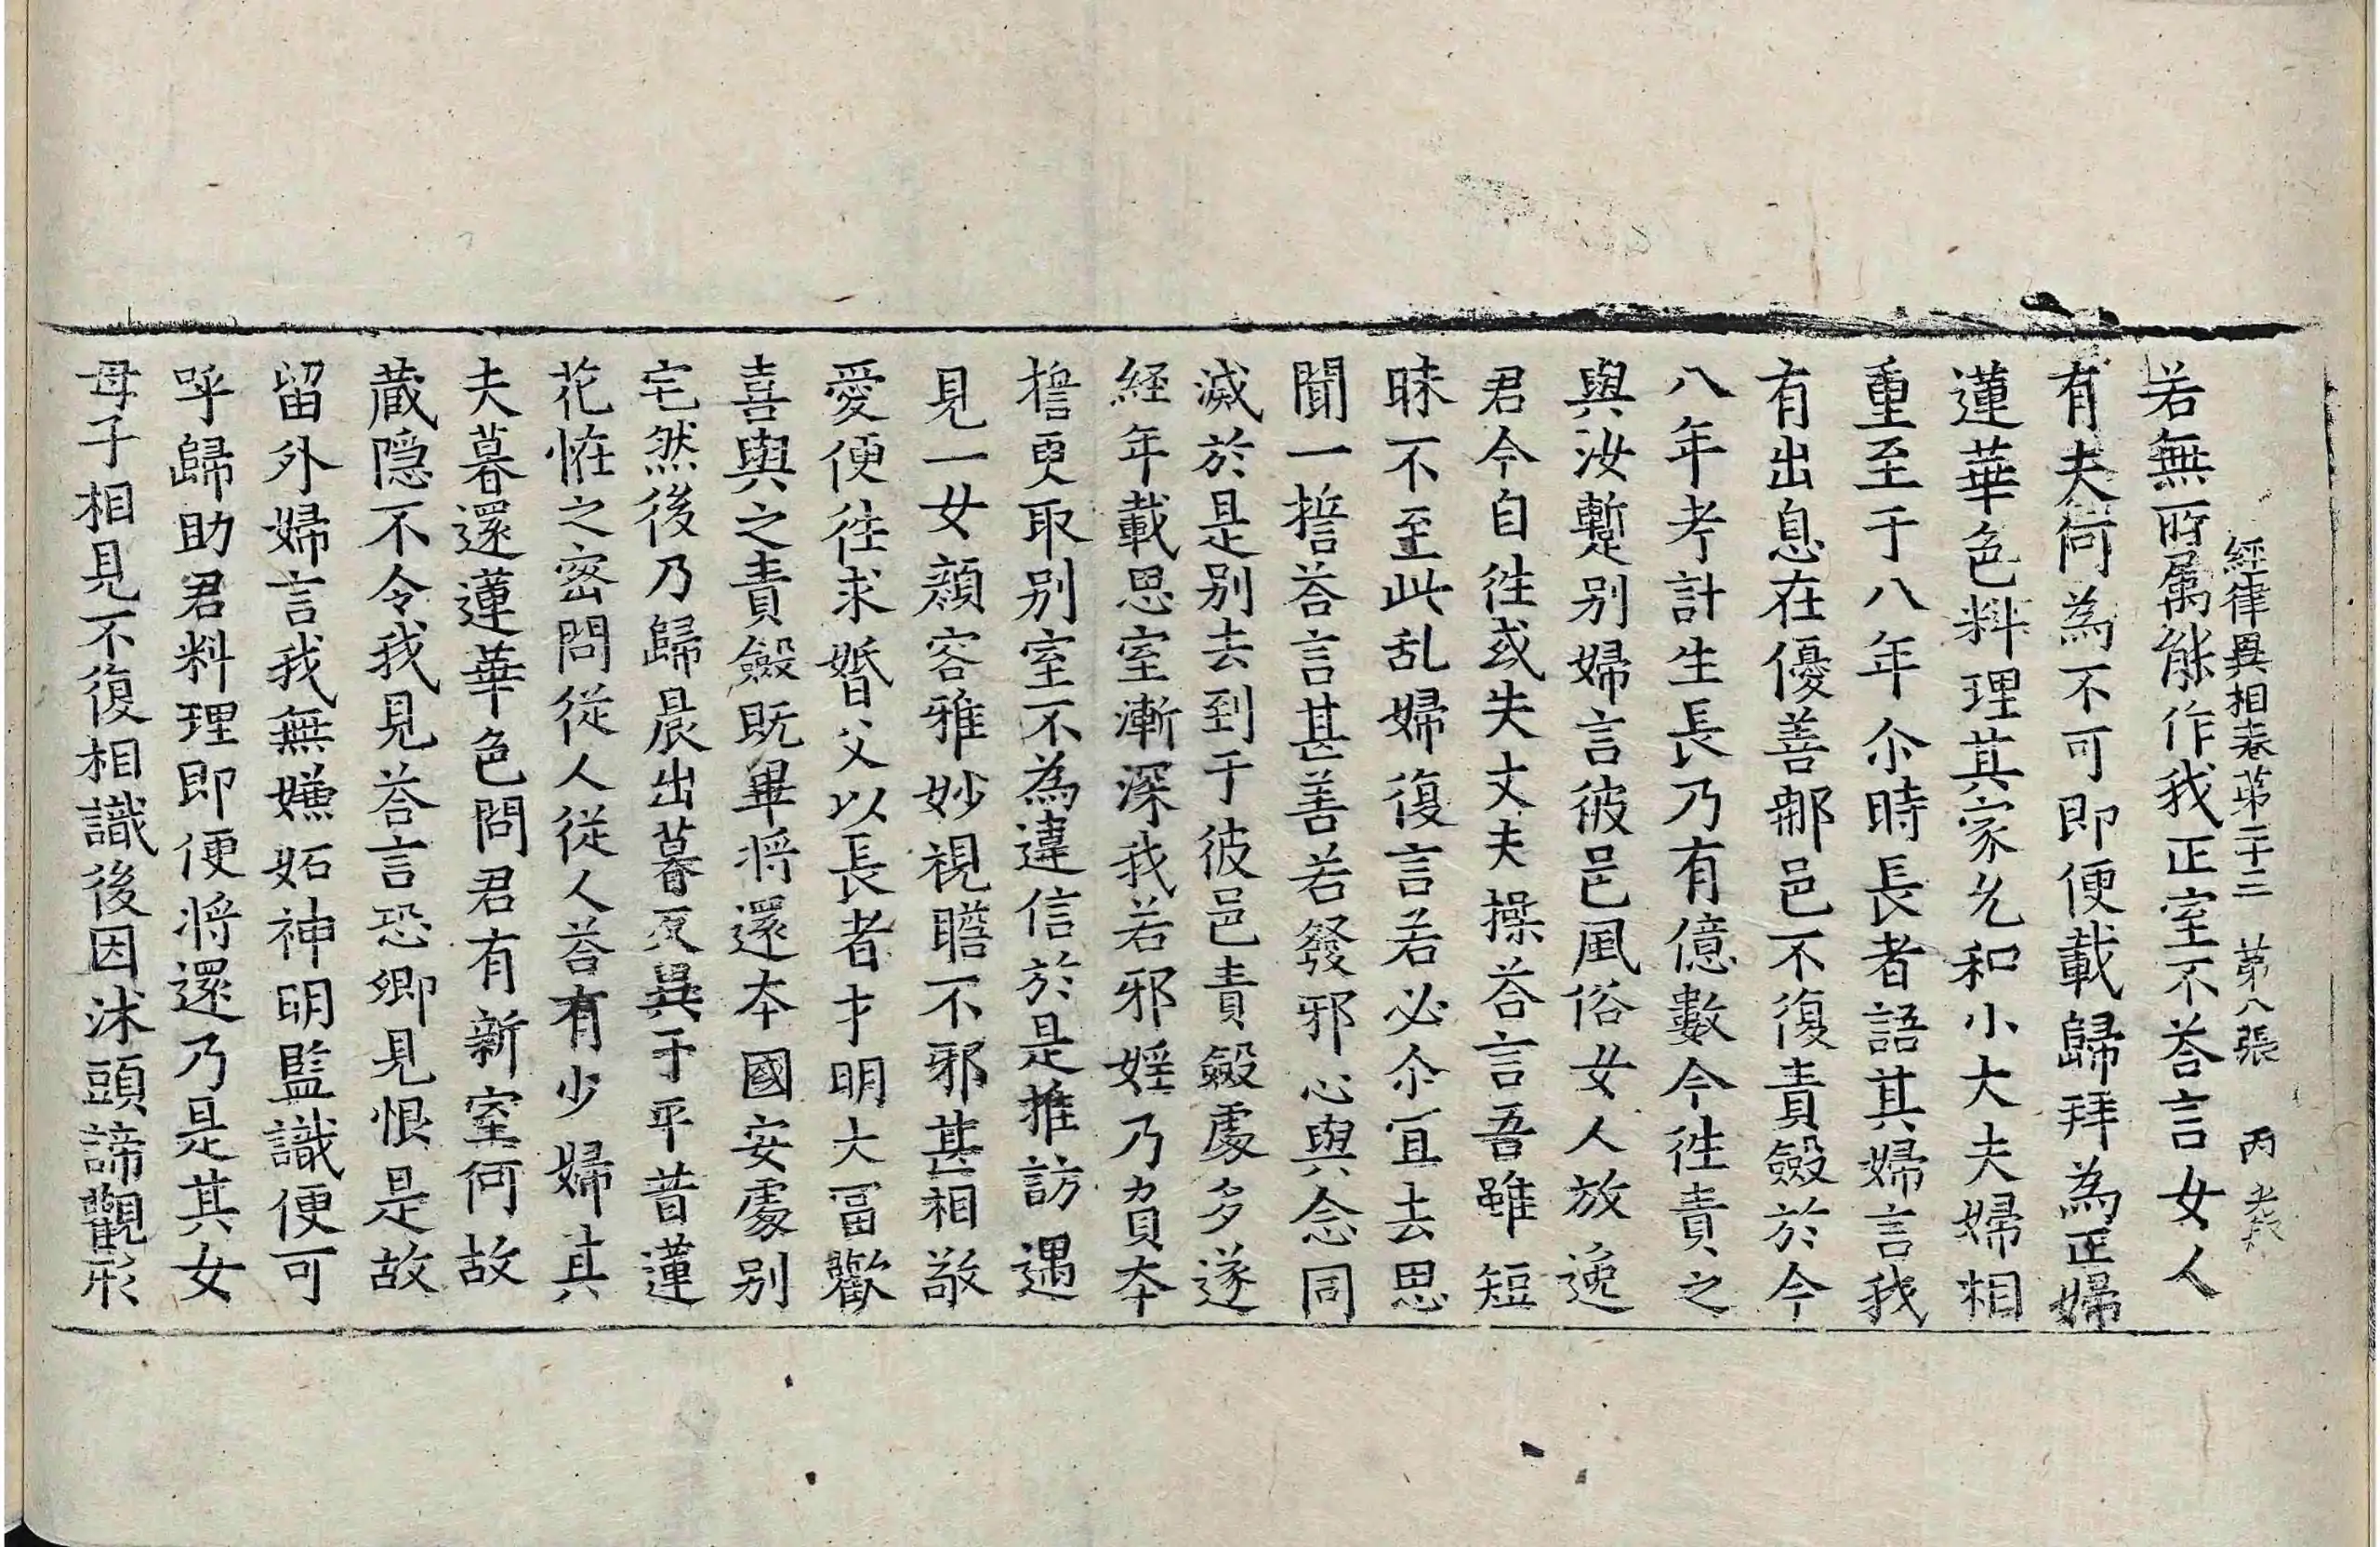 經律異相卷第二十三　第八張　丙
若無所属能作我正室不荅言女人
有夫何為不可即便載歸拜為正婦
蓮華色料理其家允和小大夫婦相
重至于八年尒時長者語其婦言我
有出息在優善那邑不復責斂於今
八年考計生長乃有億數今往責之
與汝蹔别婦言彼邑風俗女人放逸
君今自往或失丈夫操荅言吾雖短
昧不至此乱婦復言若必尒冝去思
聞一誓荅言甚善若發邪心與念同
滅於是别去到于彼邑責斂處多遂
経年載思室漸深我若邪婬乃負本
誓更取别室不為違信於是推訪遇
見一女顔容雅妙視瞻不邪甚相敬
愛便往求婚父以長者才明大冨歡
喜與之責斂既畢將還本國安處别
宅然後乃歸晨出暮反異于平昔蓮
花恠之密問従人従人荅有少婦其
夫暮還蓮華色問君有新室何故
蔵隠不令我見荅言恐卿見恨是故
留外婦言我無嫌妬神明監識便可
呼歸助君料理即便將還乃是其女
母子相見不復相識後因沐頭諦觀形